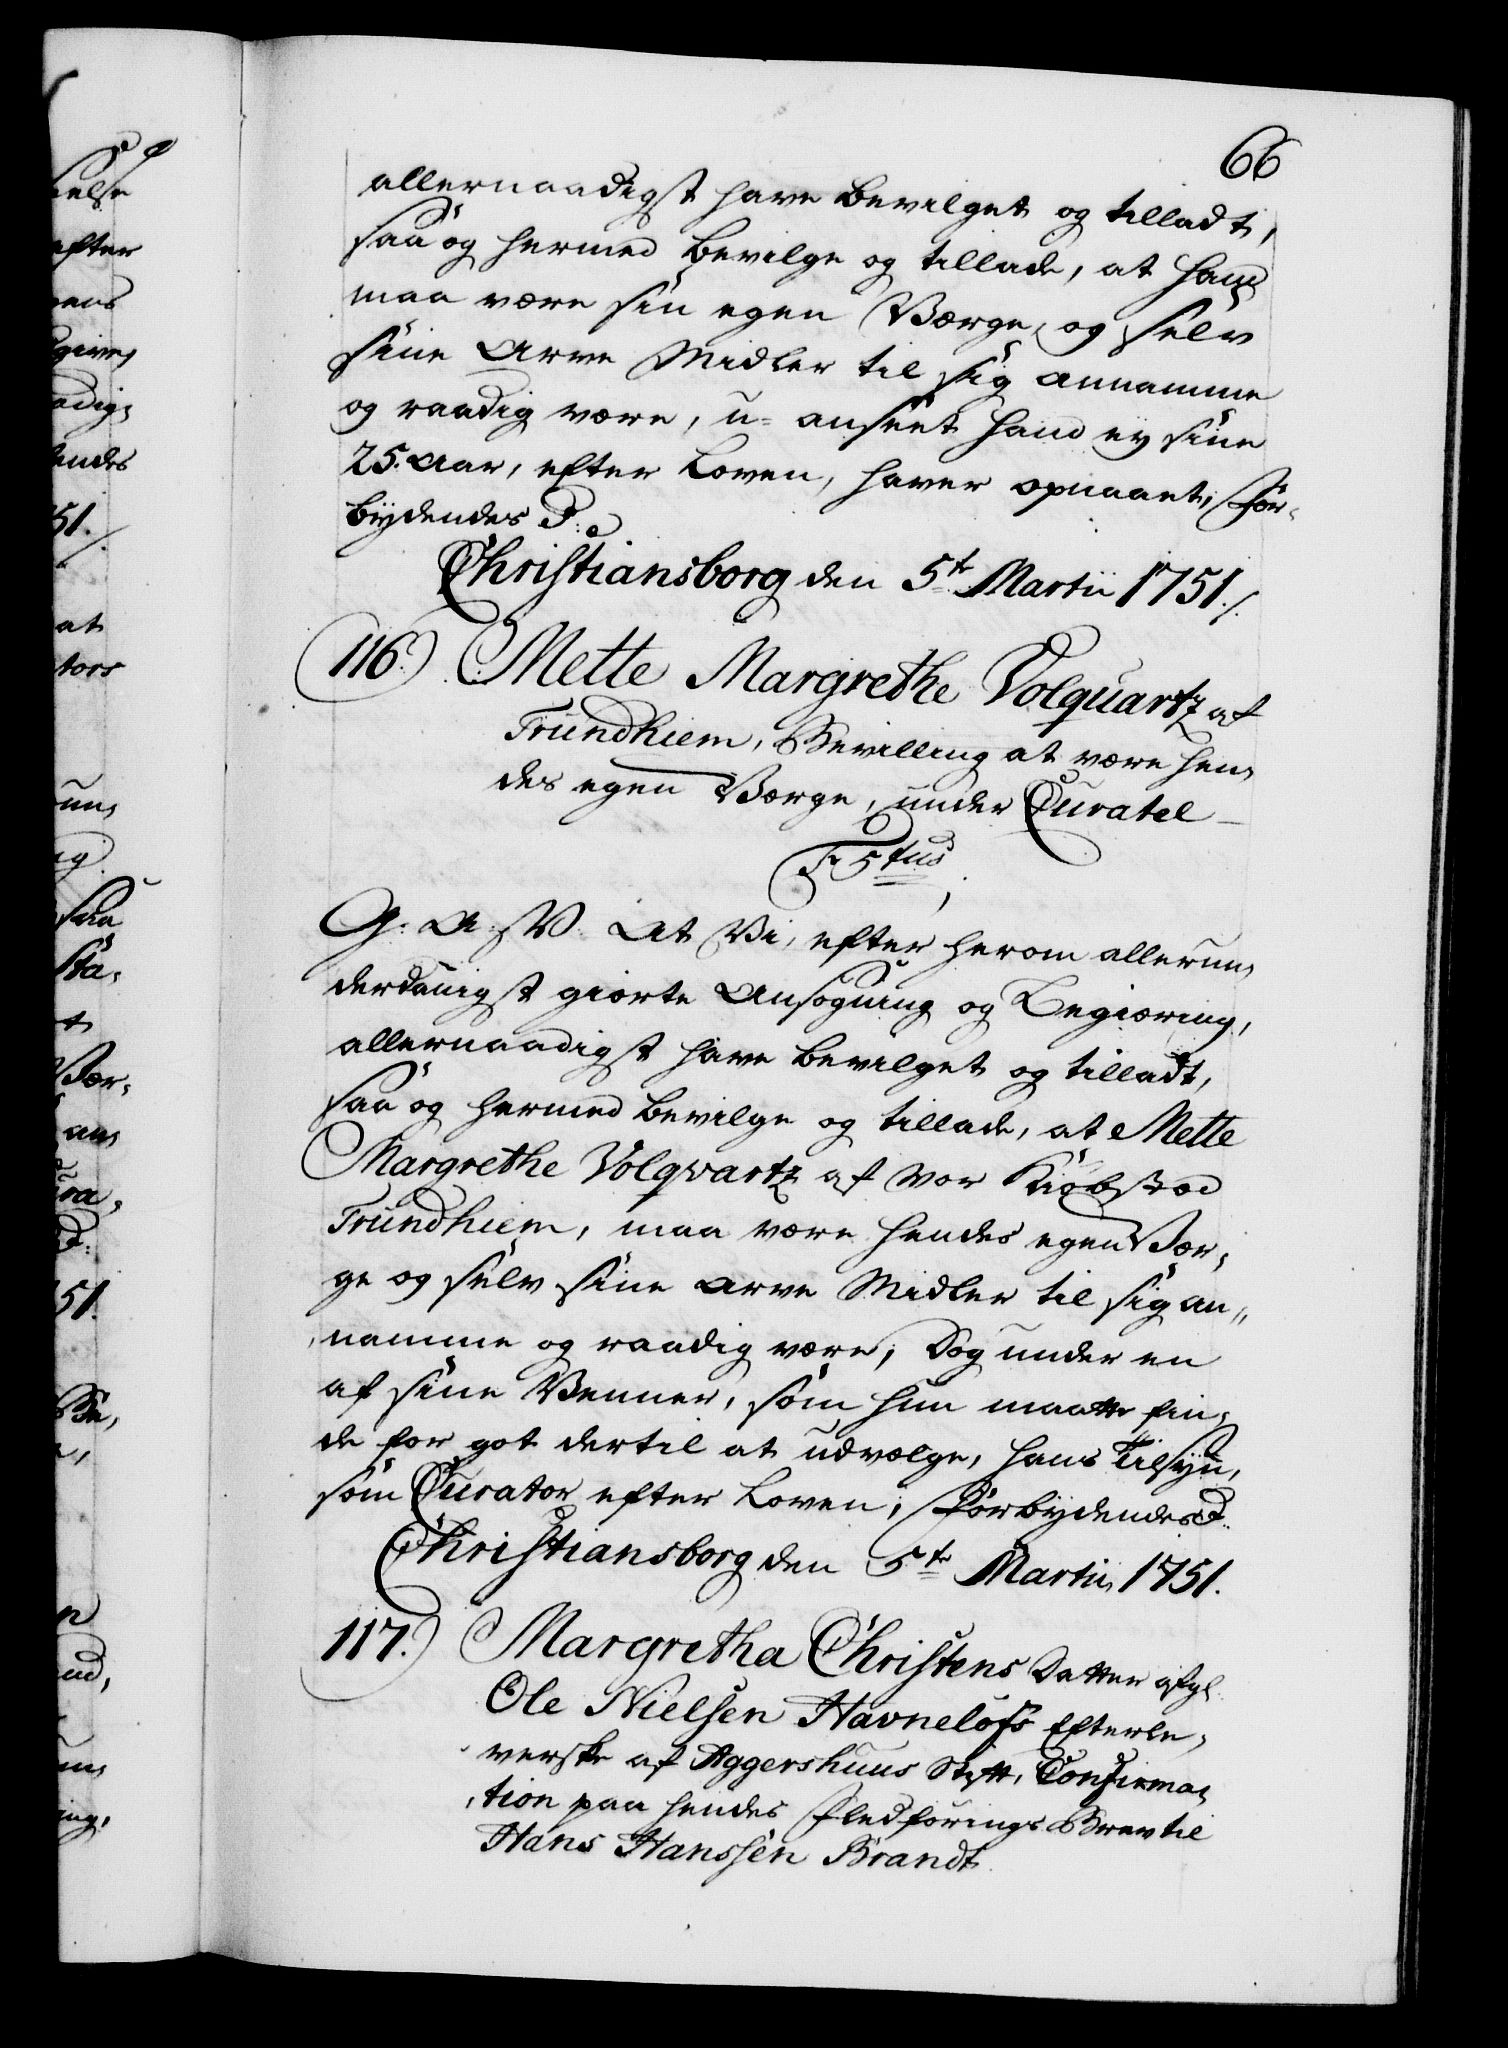 66
allernaadigst have bevilget og tilladt,
saa og hermed bevilge og tillade, at hand
maa være sin egen Værge, og selv
sine Arve Midler til sig annamme
og raadig være, u-anseet hand ey sine
25. Aar, efter Loven, haver opnaaet, For-
bydendes p:
Christiansborg den 5te Martii 1751./.
116.) Mette Margrethe Volquartz af
Trundhiem, Bevilling at være hen,
des egen Værge, under Curatel
F 5tus
G: A: V. At Vi, efter herom allerun,
derdanigst giorte Ansøgning og Begiæring,
allernaadigst have bevilget og tilladt,
saa og hermed bevilge og tillade, at Mette
Margrethe Volqvartz af vor Kiøbstæd
Trundhiem, maa være hendes egen Vær,
ge og selv sine Arve Midler til sig an,,
namme og raadig være, Dog under en
af sine Venner, som hun maatte fin,
de for got dertil at udvælge, hans Tilsyn,
som Curator efter Loven; Forbydendes p:
Christiansborg den 5te Martii 1751.
117.) Margretha Christens Datter afgl:
Ole Nielsen Havneløfs Efterle,
verske af Aggershuus Stift, Confirma,
tion paa hendes Fledførings Brev til
Hans Hanssen Brandt
kelse
efter
gens
give,
adig,
endes
51./.
at
tors
un,
ig
saa
Sta,
t
Vær,
an,
ra,
p:
51.
Be,
e,
n
ud,
un,
ing,